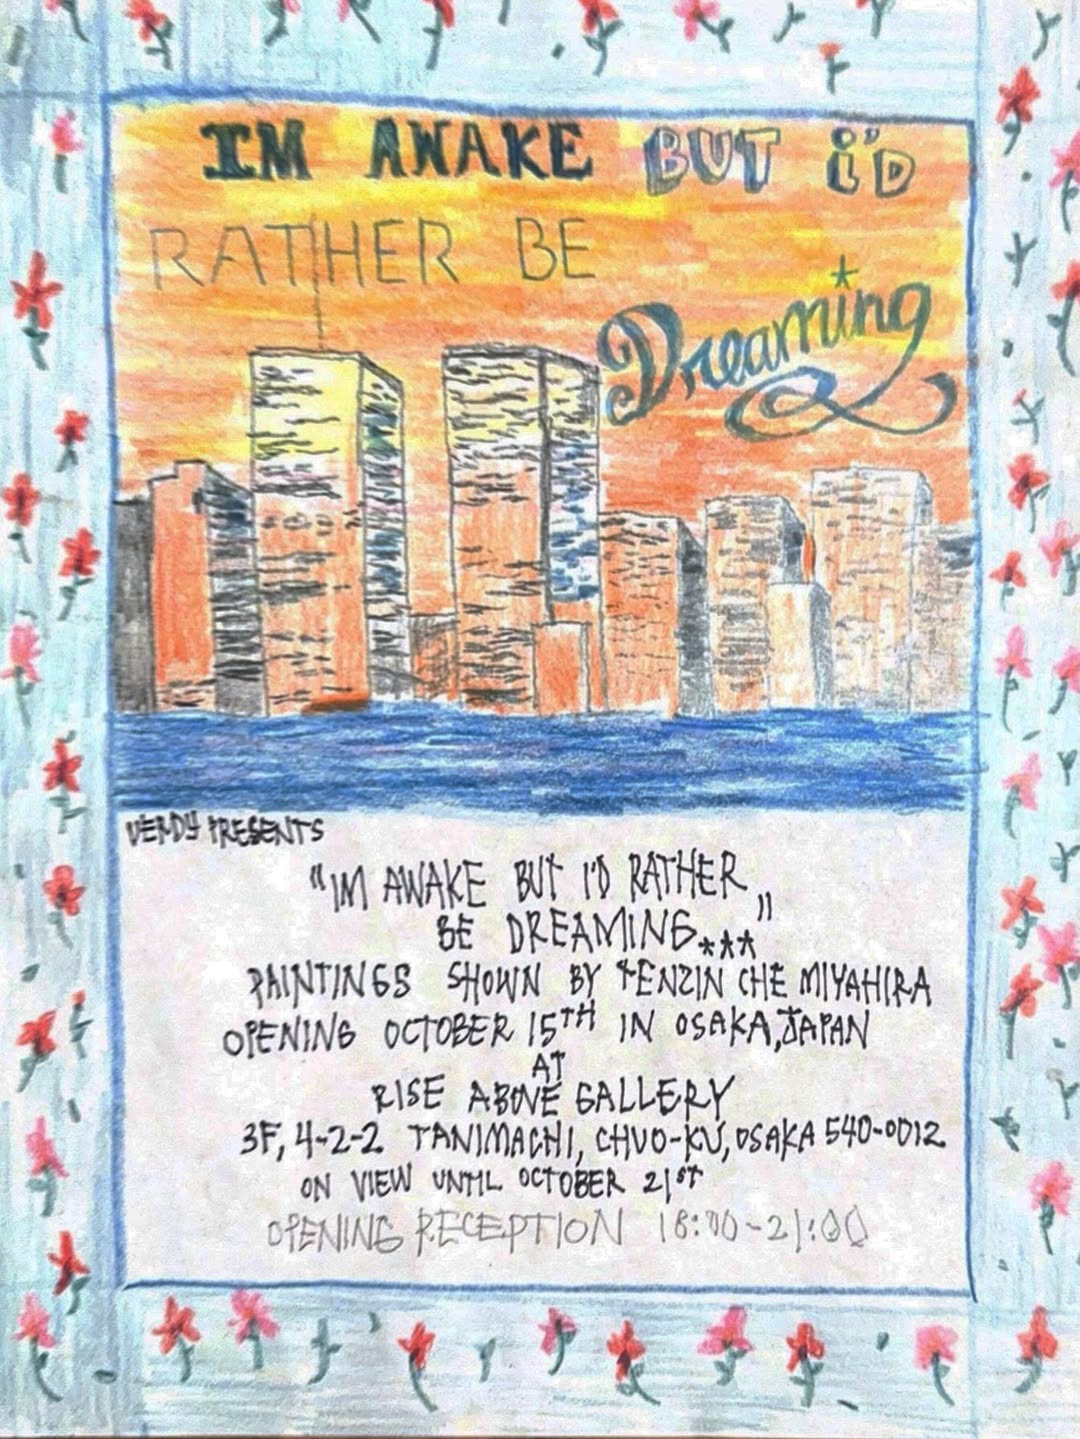 IM AWAKE BUT i'D
RATHER BE
Dreaming
VERDY PRESENTS
"IM AWAKE BUT I'D RATHER
BE DREAMING***"
PAINTINGS SHOWN BY TENZIN CHE MIYAHIRA
OPENING OCTOBER 15TH IN OSAKA, JAPAN
AT
RISE ABOVE GALLERY
3F, 4-2-2 TANIMACHI, CHUO-KU, OSAKA 540-0012
ON VIEW UNTIL OCTOBER 21ST
OPENING RECEPTION 18:00-21:00